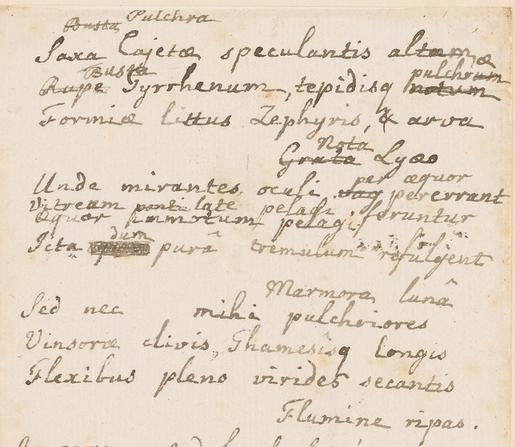 Busta Pulchra
Saxa Cajetæ speculantis altamæ
Busta pulchrum
Rupe Tyrrhenum, tepidisq notum
Formiæ littus Zephyris, & arva
Nota
Grata Lyæo
per æquor
Unde mirantes oculi vag pererrant
Vitream ponti late pelagi, feruntur
Æquor immotum pelagi
dum
Icta purâ tremulum refulgent
Marmora lunâ
Sed nec mihi pulchriores
Vinsoræ clivis, Thamesisq longis
Flexibus pleno virides secantis
Flumine ripas.